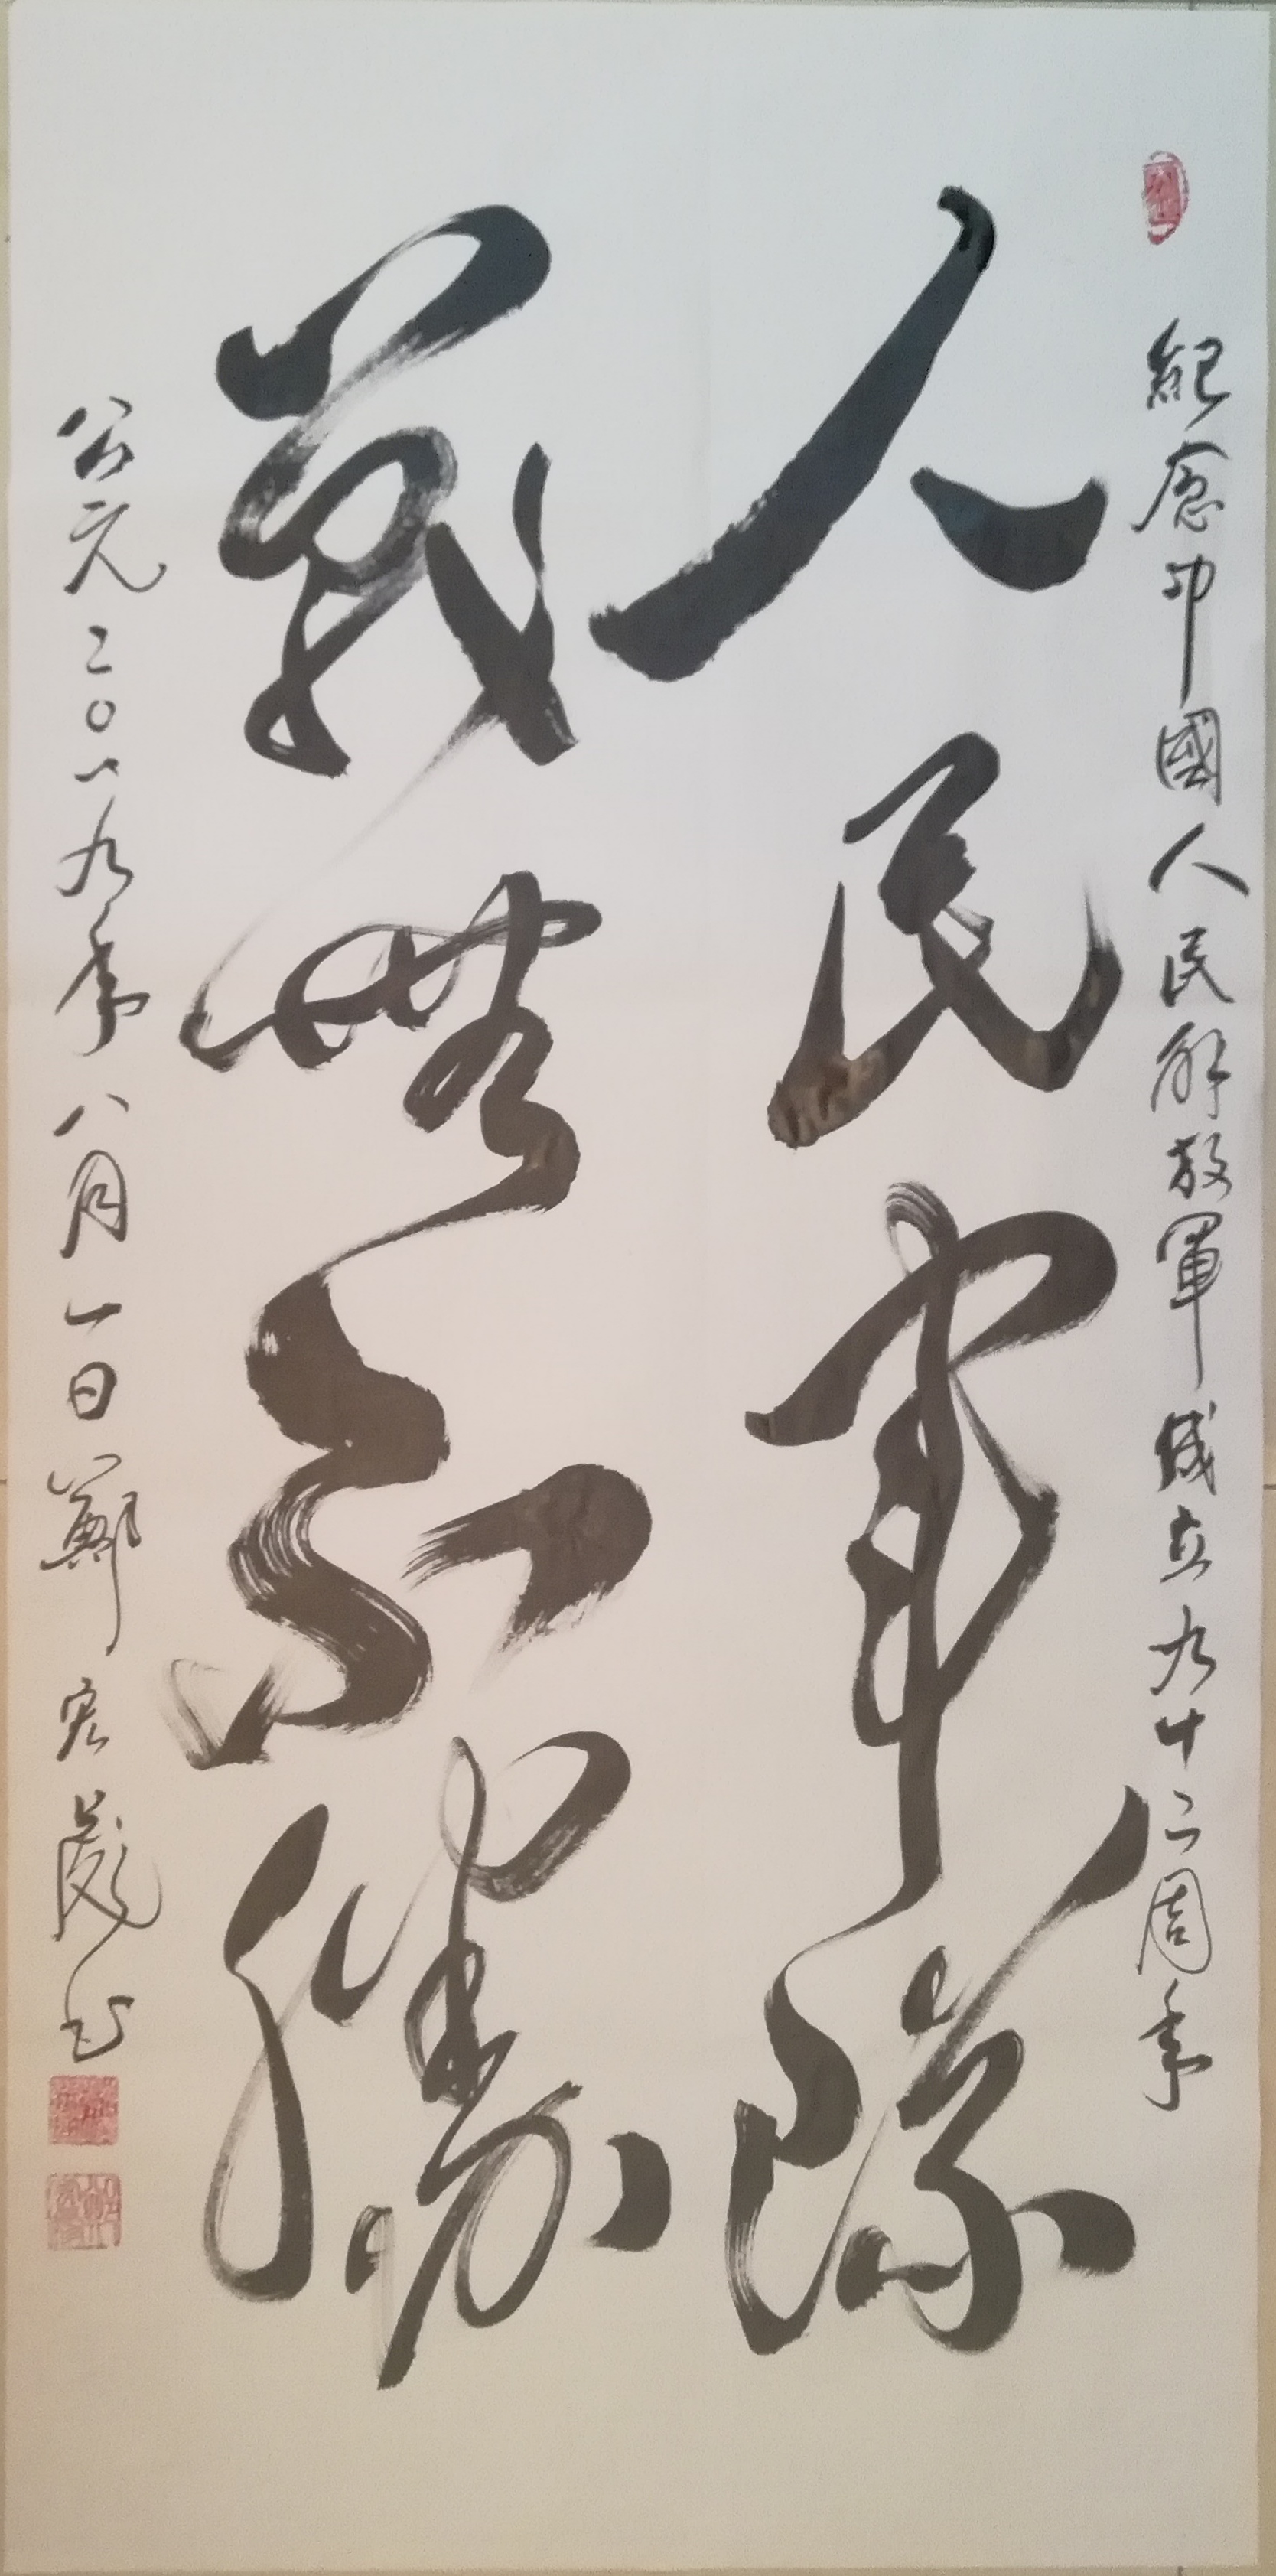 紀念中國人民解放軍成立九十二周年
人民軍隊
戰無不勝
公元二〇一九年八月一日鄭宏